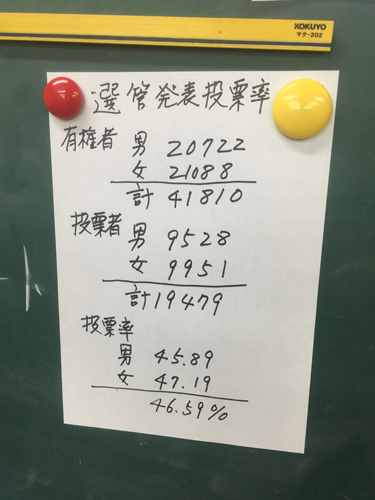 KOKUYO
マク-202
選管発表投票率
有権者 男 20722
女 21088
計 41810
投票者 男 9528
女 9951
計 19479
投票率
男 45.89
女 47.19
46.59%